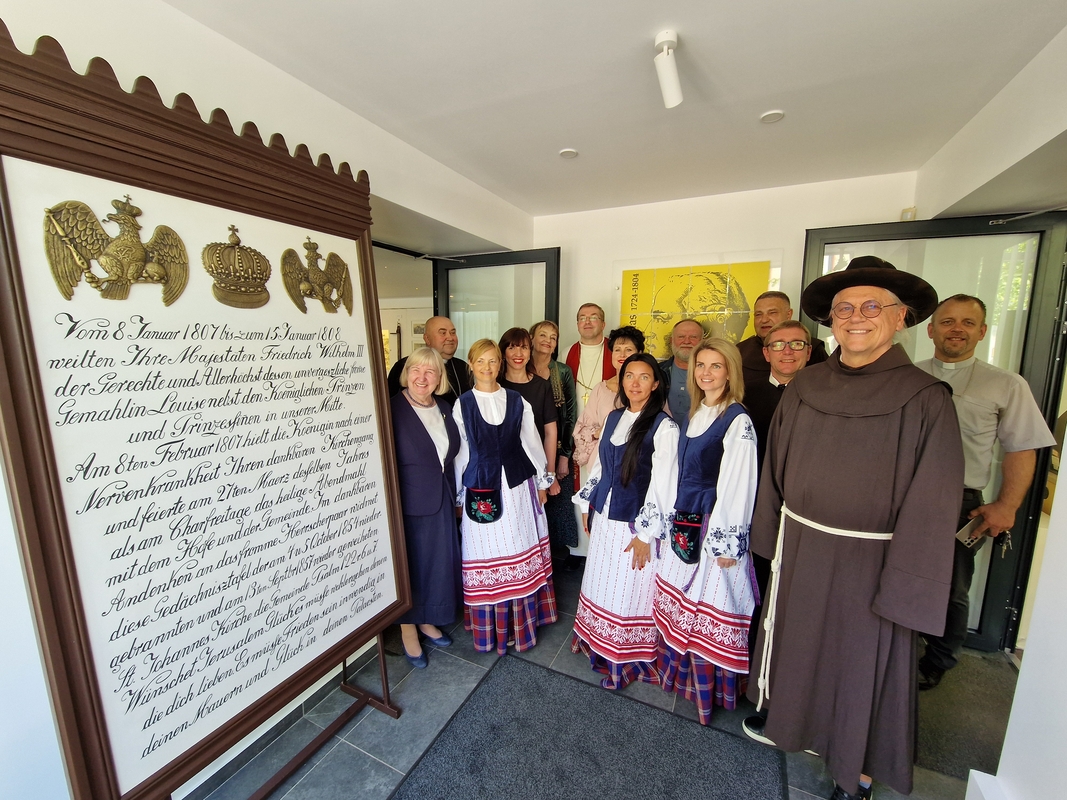 Vom 8 Januar 1807 bis zum 15 Januar 1808
weilten Ihre Majestäten Friedrich Wilhelm III
der Gerechte und Allerhöchst dessen unvergeszliche fromme
Gemahlin Louise nebst den Koeniglichen Prinzen
und Prinzessinen in unserer Mitte.
Am 8ten Februar 1807 hielt die Koenigin nach einer
Nervenkrankheit Ihren dankbaren Kirchengang
und feierte am 27ten Maerz desselben Jahres
als am Charfreitage das heilige Abendmahl
mit dem Hofe und der Gemeinde. Im dankbaren
Andenken an das fromme Herrscherpaar widmet
diese Gedächnisztafel der am 4 u 5 October 1854 nieder
gebrannten und am 13ten Septbr 1857 wieder geweiheten
St. Johannes Kirche die Gemeinde Psalm 122 v 6 u 7
Wünschet Jerusalem Glück es müsse wohlergehen denen
die dich lieben Es müsse Frieden sein inwendig in
deinen Mauern und Glück in deinen Palaesten.
1724-1804